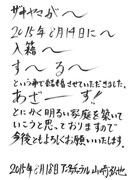 ザキヤマが〜
2015年8月14日に〜
入籍〜
す〜る〜
という事で結婚させていただきました。
あざーーす!!
とにかく明るい家庭を築いて
いこうと思っておりますので
今後ともよろしくお願いします。
2015年8月18日 アンタッチャブル 山崎弘也